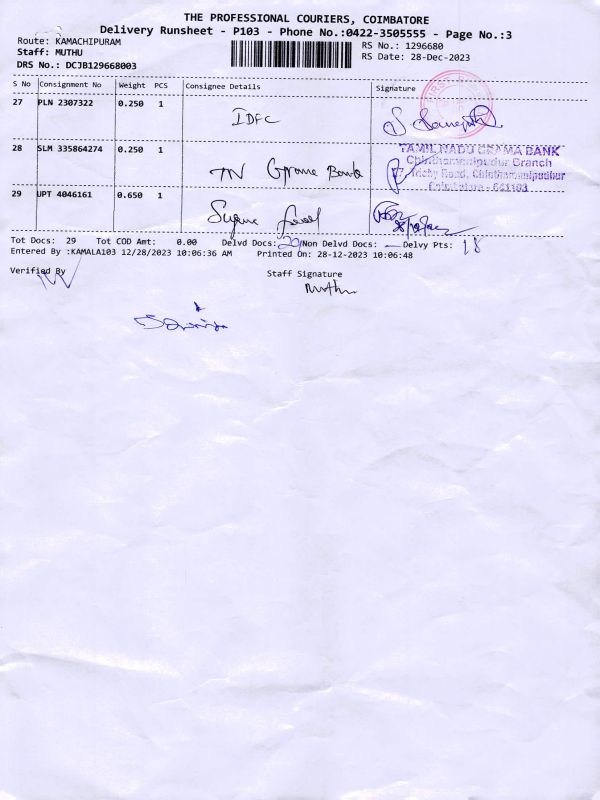 THE PROFESSIONAL COURIERS, COIMBATORE
Delivery Runsheet - P103 - Phone No.:0422-3505555 - Page No.:3
Route: KAMACHIPURAM
Staff: MUTHU
DRS No.: DCJB129668003
RS No.: 1296680
RS Date: 28-Dec-2023
S No Consignment No Weight PCS Consignee Details Signature
27 PLN 2307322 0.250 1 IDFC
28 SLM 335864274 0.250 1 TN Grama Bank
TAMIL NADU GRAMA BANK
Chinthamanipudur Branch
Trichy Road, Chinthamanipudur
Coimbatore - 641103
29 UPT 4046161 0.650 1
Tot Docs: 29 Tot COD Amt: 0.00 Delvd Docs: 29 Non Delvd Docs: — Delvy Pts: 18
Entered By :KAMALA103 12/28/2023 10:06:36 AM Printed On: 28-12-2023 10:06:48
Verified By Staff Signature
Muthu